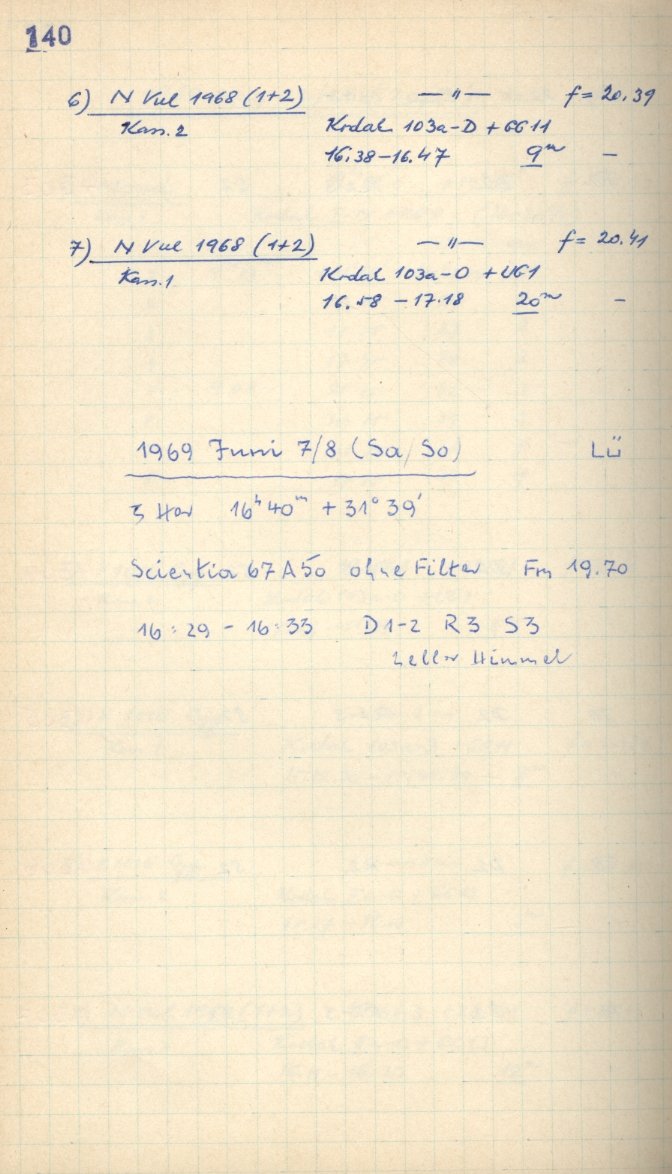 140
6) N Vul 1968 (1+2) — " — f = 20.39
Kass. 2 Kodak 103a-D + GG11
16.38 - 16.47 9m –
7) N Vul 1968 (1+2) — " — f = 20.41
Kass. 1 Kodak 103a-O + UG1
16.58 - 17.18 20m –
1969 Juni 7/8 (Sa/So) Lü
3 Har 16h 40m + 31° 39'
Scientia 67 A 50 ohne Filter 19.70
16:29 - 16:33 D1-2 R3 S3
heller Himmel